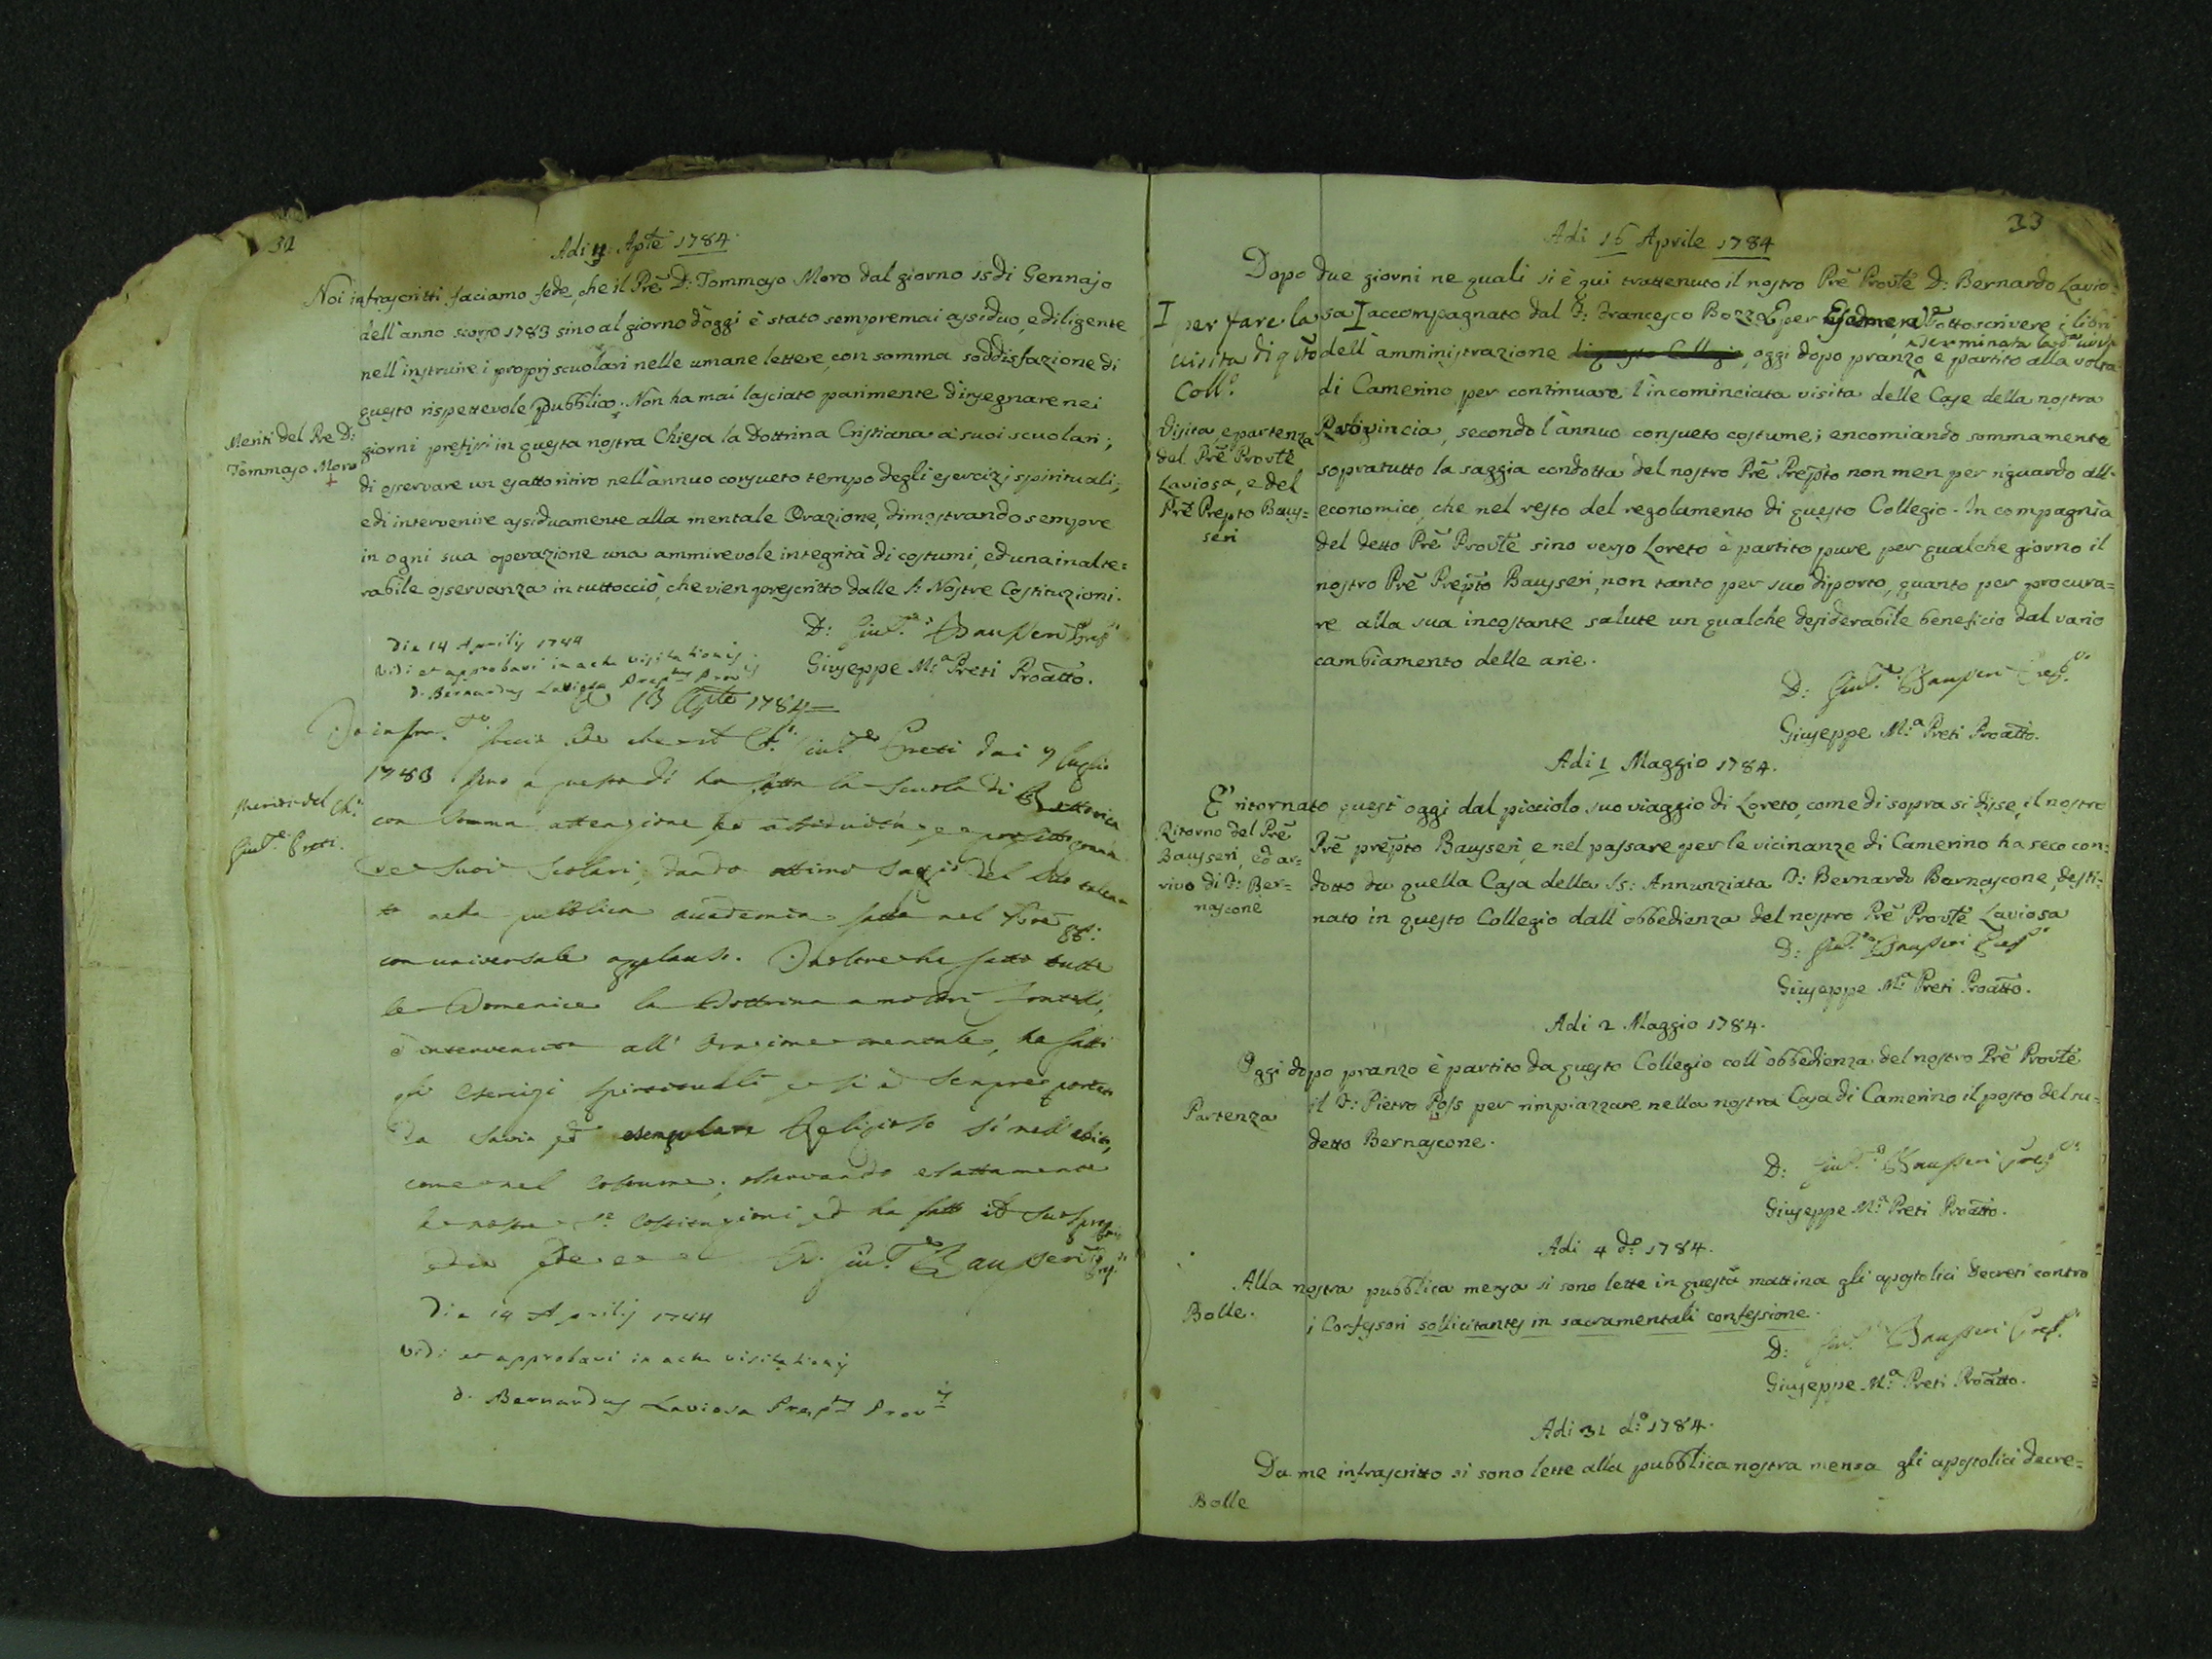 32
Adi 4 Aple 1784.
Noi infrascritti faciamo fede, che il Pre D: Tommaso Moro dal giorno 15 di Gennajo
dell'anno scorso 1783 sino al giorno d'oggi è stato sempremai assiduo, e diligente
nell'instruire i proprj scuolari nelle umane lettere, con somma soddisfazione di
questo rispettevole Pubblico. Non ha mai lasciato parimente d'insegnare nei
giorni prefissi in questa nostra Chiesa la Dottrina Cristiana a' suoi scuolari;
di osservare un esatto ritiro nell'annuo consueto tempo degli esercizj spirituali;
e di intervenire assiduamente alla mentale Orazione, dimostrando sempre
in ogni sua operazione una ammirevole integrità di costumi, ed una inalte=
rabile osservanza in tuttocciò, che vien prescritto dalle S: Nostre Costituzioni.
Meriti del Pre D:
Tommaso Moro
D: Giuse. Bausseri Prepo
Giuseppe Ma. Preti Proatto.
Die 14 Aprilis 1784
Vidi et approbavi in actu visitationis
D. Bernardus Laviosa Preptus Provlis
13 Aple 1784
Io infrto faccio fede che il Ch. Giuse Preti dai 7 luglio
1783 sino a questo dì ha fatta la scuola di Rettorica
con somma attenzione ed assiduità, e profitto
suoi scolari, dando ottimo saggio del suo talen=
to nella pubblica accademia fatta nel
con universale applauso. Inoltre ha fatto tutte
le Domeniche la Dottrina a nostri Fratelli,
è intervenuto all' Orazione mentale, ha fatti
gli Esercizj spirituali e si è sempre portato
da savio ed esemplare Religioso sì nell'
come nel costume, osservando esattamente
le nostre Se Costituzioni ed ha fatto il suo
D. Giuse Bausseri Prepo
Meriti del Ch:
Giuse. Preti.
Die 14 Aprilis 1784
Vidi et approbavi in actu visitationis
D. Bernardus Laviosa Preptus Provlis
33
Adi 16 Aprile 1784
Dopo due giorni ne quali si è qui trattenuto il nostro Pre Provle D: Bernardo Lavio=
sa I accompagnato dal D: Francesco Bozza E per sottoscrivere i libri
dell'amministrazione di questo Collegio, oggi dopo pranzo terminata la da visita è partito alla volta
di Camerino per continuare l'incominciata visita delle Case della nostra
Provincia, secondo l'annuo consueto costume; encomiando sommamente
sopratutto la saggia condotta del nostro Pre Prepto non men per riguardo all'
economico, che nel resto del regolamento di questo Collegio. In compagnia
del detto Pre Provle sino verso Loreto è partito pure per qualche giorno il
nostro Pre Prepto Bausseri, non tanto per suo diporto, quanto per procura=
re alla sua incostante salute un qualche desiderabile beneficio dal vario
cambiamento delle arie.
I per fare la
visita di qto
Collo.
Visita, e partenza
del Pre Provle
Laviosa, e del
Pre Prepto Baus=
seri
D: Giuse. Bausseri Prepo
Giuseppe Ma. Preti Proatto.
Adi 1 Maggio 1784.
E' ritornato quest'oggi dal picciolo suo viaggio di Loreto, come di sopra si disse, il nostro
Pre prepto Bausseri, e nel passare per le vicinanze di Camerino ha seco con=
dotto da quella Casa della Ss: Annunziata D: Bernardo Bernascone, desti=
nato in questo Collegio dall'obbedienza del nostro Pre Provle Laviosa
Ritorno del Pre
Bausseri, ed ar=
rivo di D: Ber=
nascone
D: Giuse. Bausseri Prepo
Giuseppe Ma. Preti Proatto.
Adi 2 Maggio 1784.
Oggi dopo pranzo è partito da questo Collegio coll'obbedienza del nostro Pre Provle
il D: Pietro Poss per rimpiazzare nella nostra Casa di Camerino il posto del su=
detto Bernascone.
Partenza
D: Giuse. Bausseri Prepo
Giuseppe Ma. Preti Proatto.
Adi 4 do 1784.
Alla nostra pubblica mensa si sono lette in questa mattina gli apostolici Decreti contro
i Confessori sollicitantes in sacramentali confessione.
Bolle.
D: Giuse. Bausseri Prepo
Giuseppe Ma. Preti Proatto.
Adi 31 do 1784.
Da me infrascritto si sono lette alla pubblica nostra mensa gli apostolici decre=
Bolle